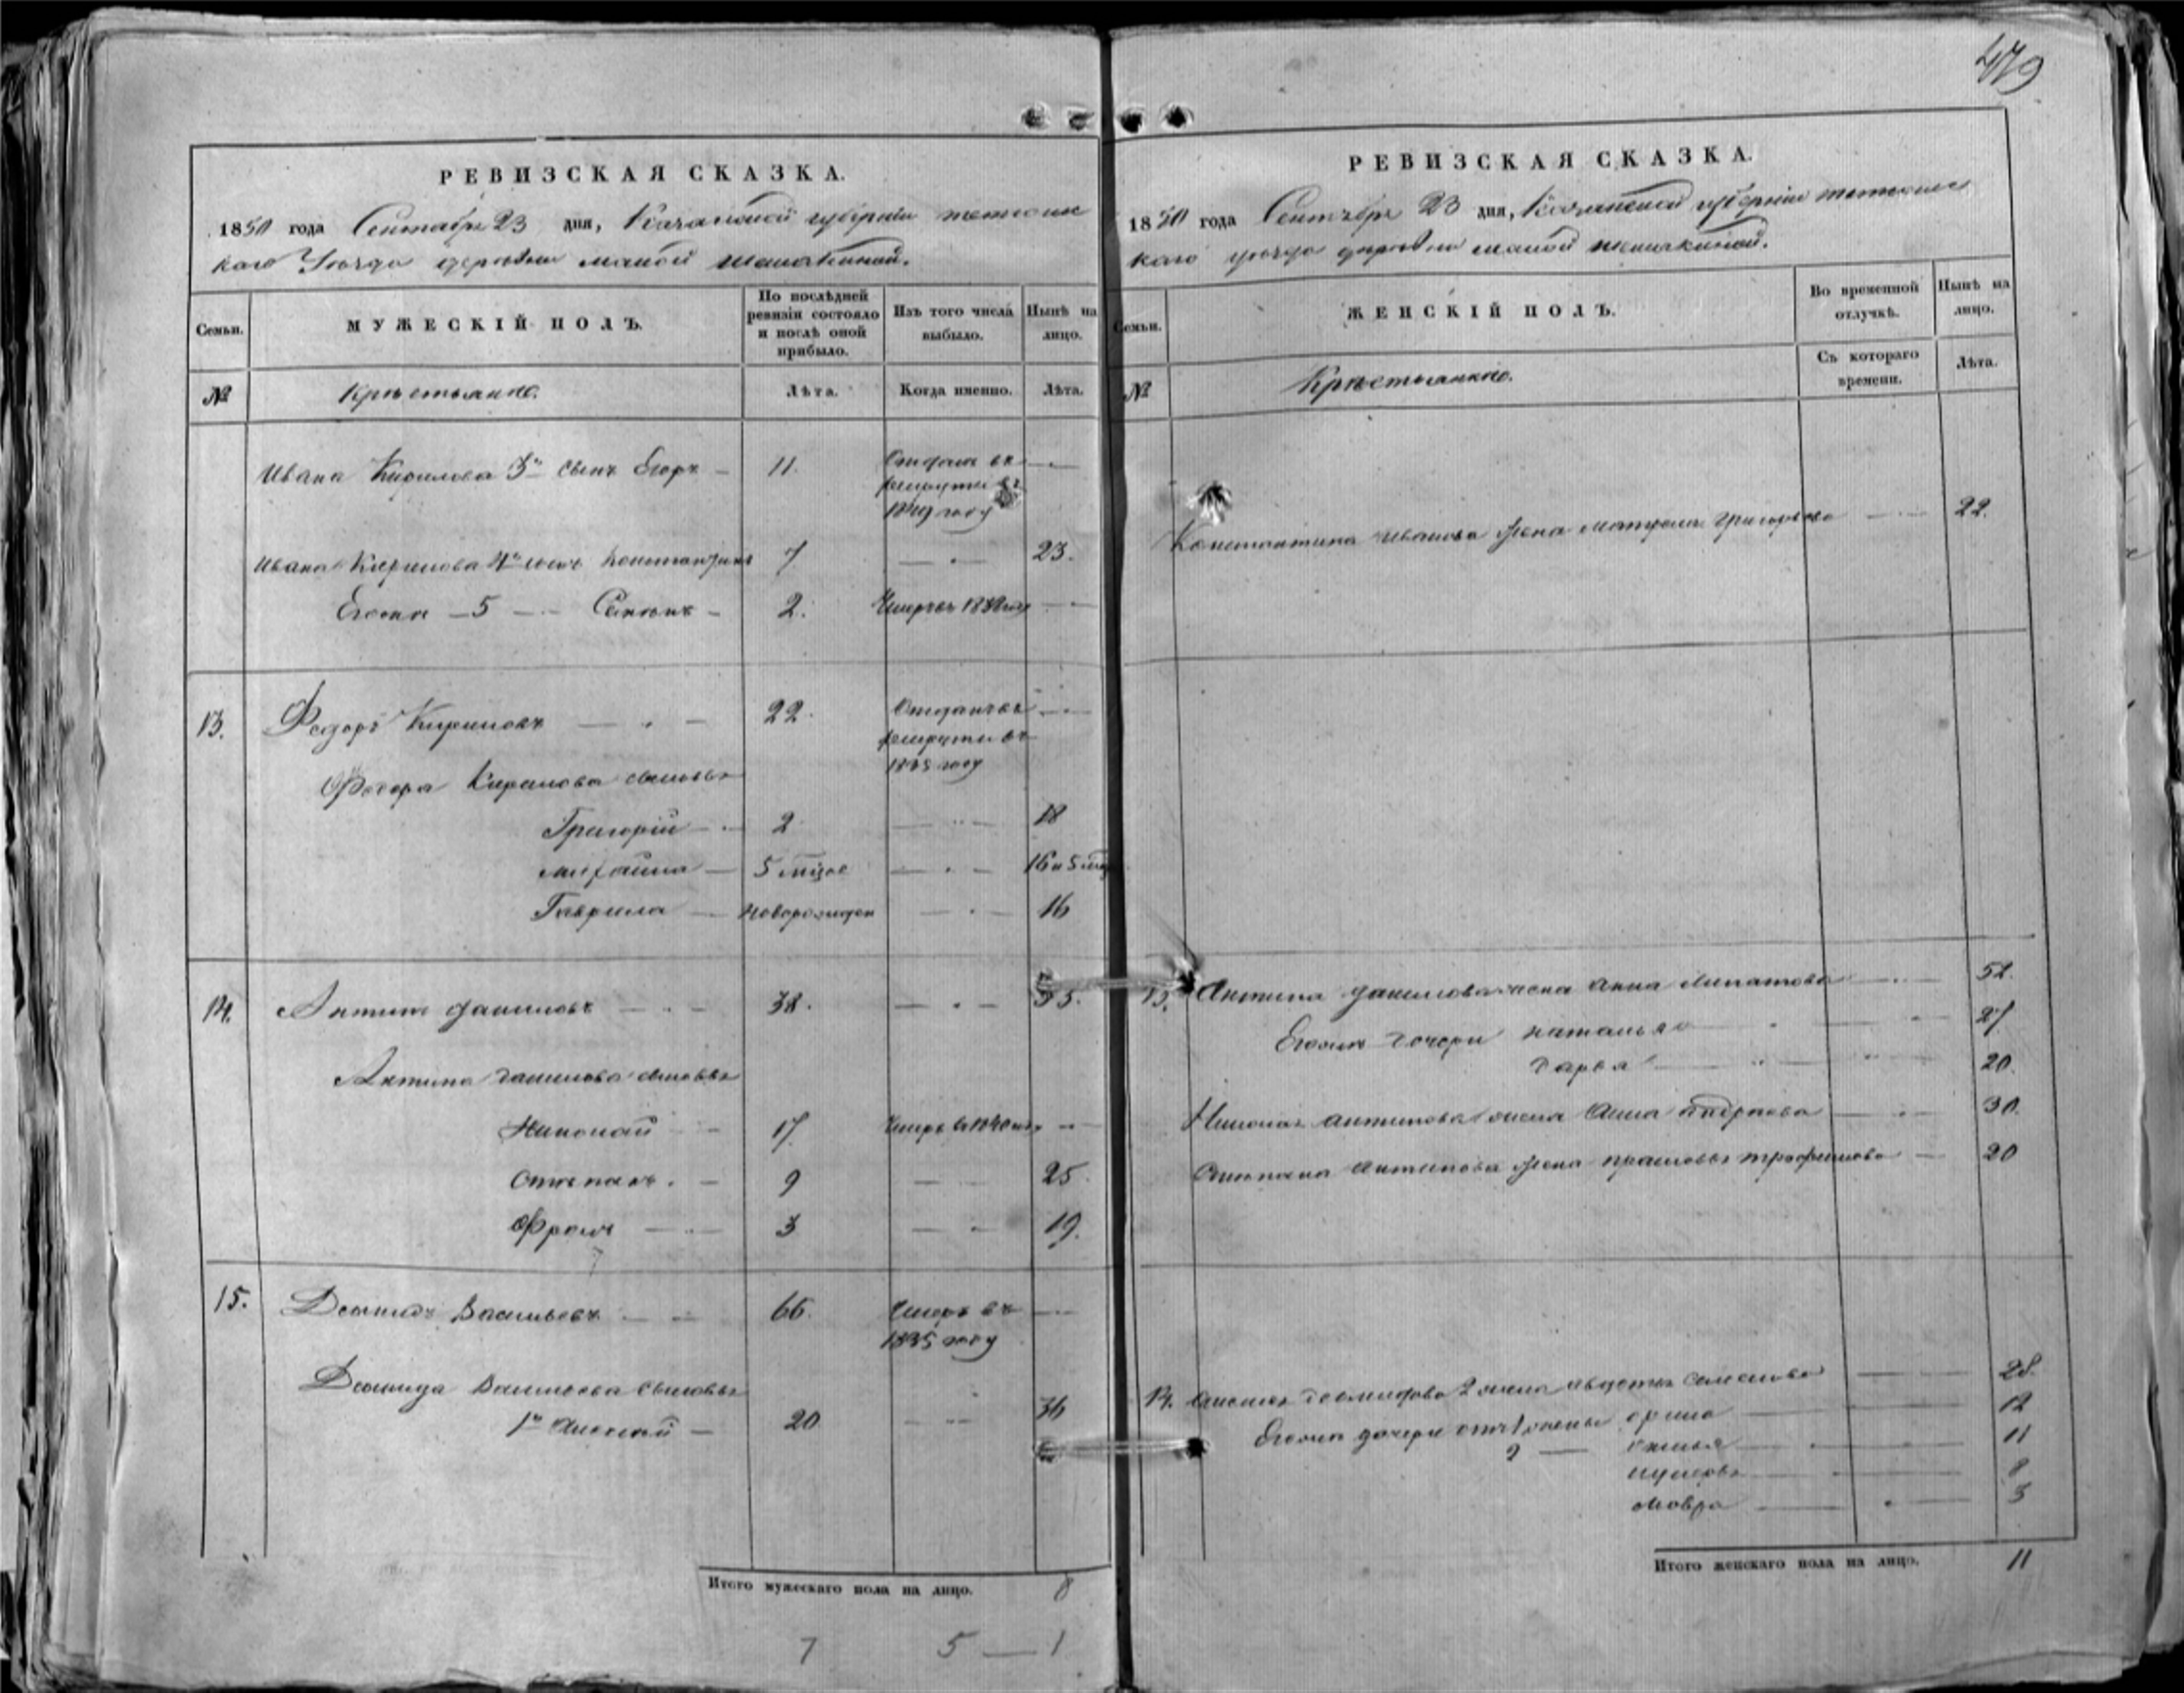 479
РЕВИЗСКАЯ СКАЗКА.
1850 года Сентября 23 дня, Казанской губернии тетюш
каго Уѣзда деревни малой
Семьи.
МУЖЕСКІЙ ПОЛЪ.
По послѣдней ревизіи состояло и послѣ оной прибыло.
Изъ того числа выбыло.
Нынѣ на лицо.
№
Крѣстьянѣ.
Лѣта.
Когда именно.
Лѣта.
Ивана Кирилова 3й сынъ Егоръ — 11. Отданъ въ
рекруты въ
году
Ивана Кирилова 4й сынъ Константинъ 7 23.
Егожа — 5 — Семенъ — 2. Умеръ въ
13. Федоръ Кириловъ — 22. Отданъ въ
рекруты въ
году
Федора Кирилова сыновья
Григорій — 2 18
михайла — 5 мѣцов 16 и 5 мѣц
Гаврила — новорожден 16
14. Антипъ даниловъ — 38. 55.
Антипа данилова сыновья
Николай — 17. Умеръ въ 1840 году
Степанъ. — 9 25.
Фролъ — 3 19.
15. Демидъ Васильевъ — 66. Умеръ въ
1835 году
Демида Васильева сыновья
1й Алексѣй — 20 36
Итого мужескаго пола на лицо. 8
7 5 — 1
РЕВИЗСКАЯ СКАЗКА.
1850 года Сентября 23 дня, Казанской губерніи тетюшс
каго уѣзда деревни малой
Семьи.
ЖЕНСКІЙ ПОЛЪ.
Во временной отлучкѣ.
Нынѣ на лицо.
№
Крѣстьянкѣ.
Съ котораго времени.
Лѣта.
Константина Иванова жена матрена григорьева — 22.
13. Антипа данилова жена анна Липатова — 52.
Егожъ дочери наталья 27
дарья 20.
Николая антипова жена Анна 30.
Степана антипова жена прасковья трофимова — 20
14. Алексея демидова 2 жена авдотья семенова 28.
Егожъ дочери отъ 1 жены орина 12
2 — 11
8
мавра 3
Итого женскаго пола на лицо. 11